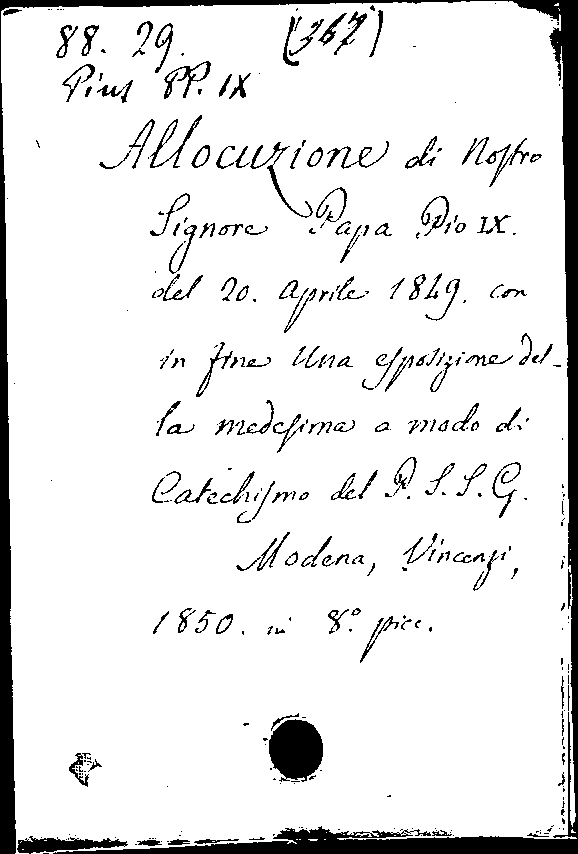 88. 29. (367)
Pius PP. IX
Allocuzione di Nostro
Signore Papa Pio IX.
del 20. Aprile 1849. con
in fine Una esposizione del-
la medesima a modo di
Catechismo del P. S. S. G.
Modena, Vincenzi,
1850. in 8.° picc.